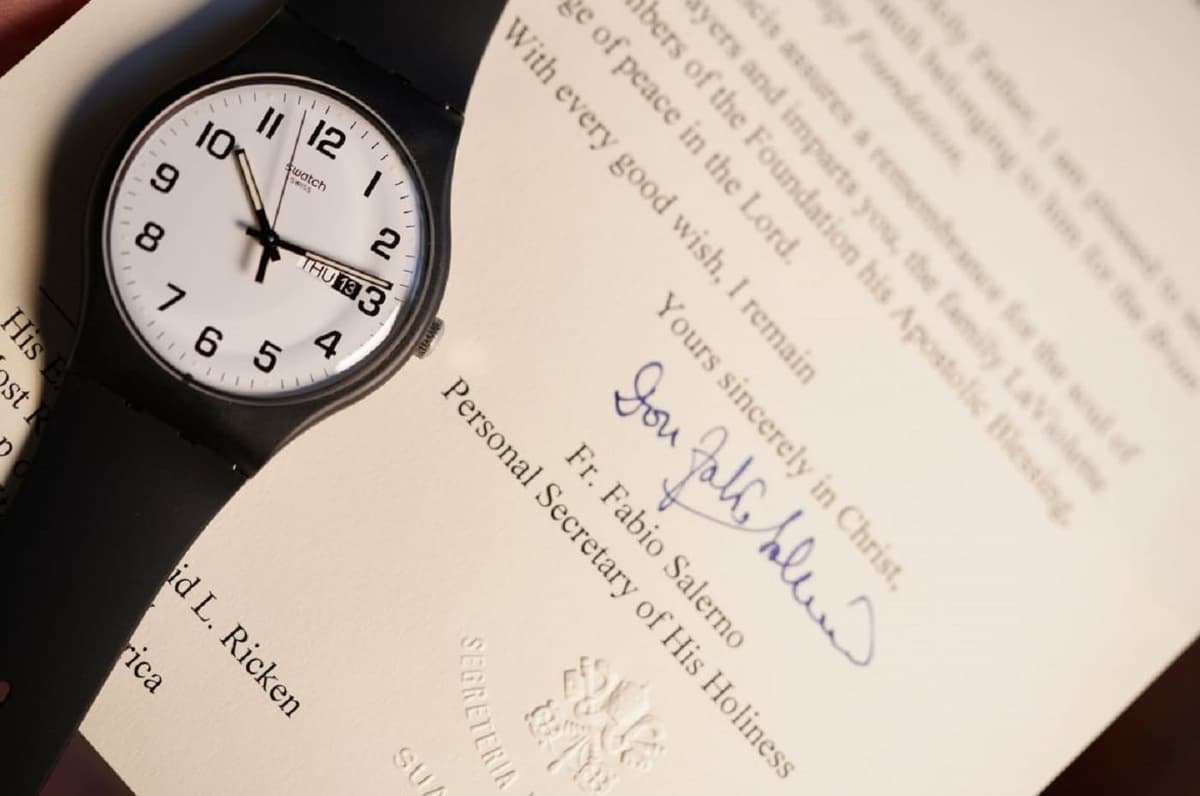 11
12
1
2
3
4
5
6
7
8
9
10
swatch
SWISS
THU 13
Holy Father, I am pleased to
watch belonging to him for the
Foundation.
assures a remembrance for the soul of
ayers and imparts you, the family LaViolette
mbers of the Foundation his Apostolic Blessing,
ge of peace in the Lord.
With every good wish, I remain
Yours sincerely in Christ,
Don Fabio Salerno
Fr. Fabio Salerno
Personal Secretary of His Holiness
SEGRETERIA
SUA
His E
ost R
id L. Ricken
rica